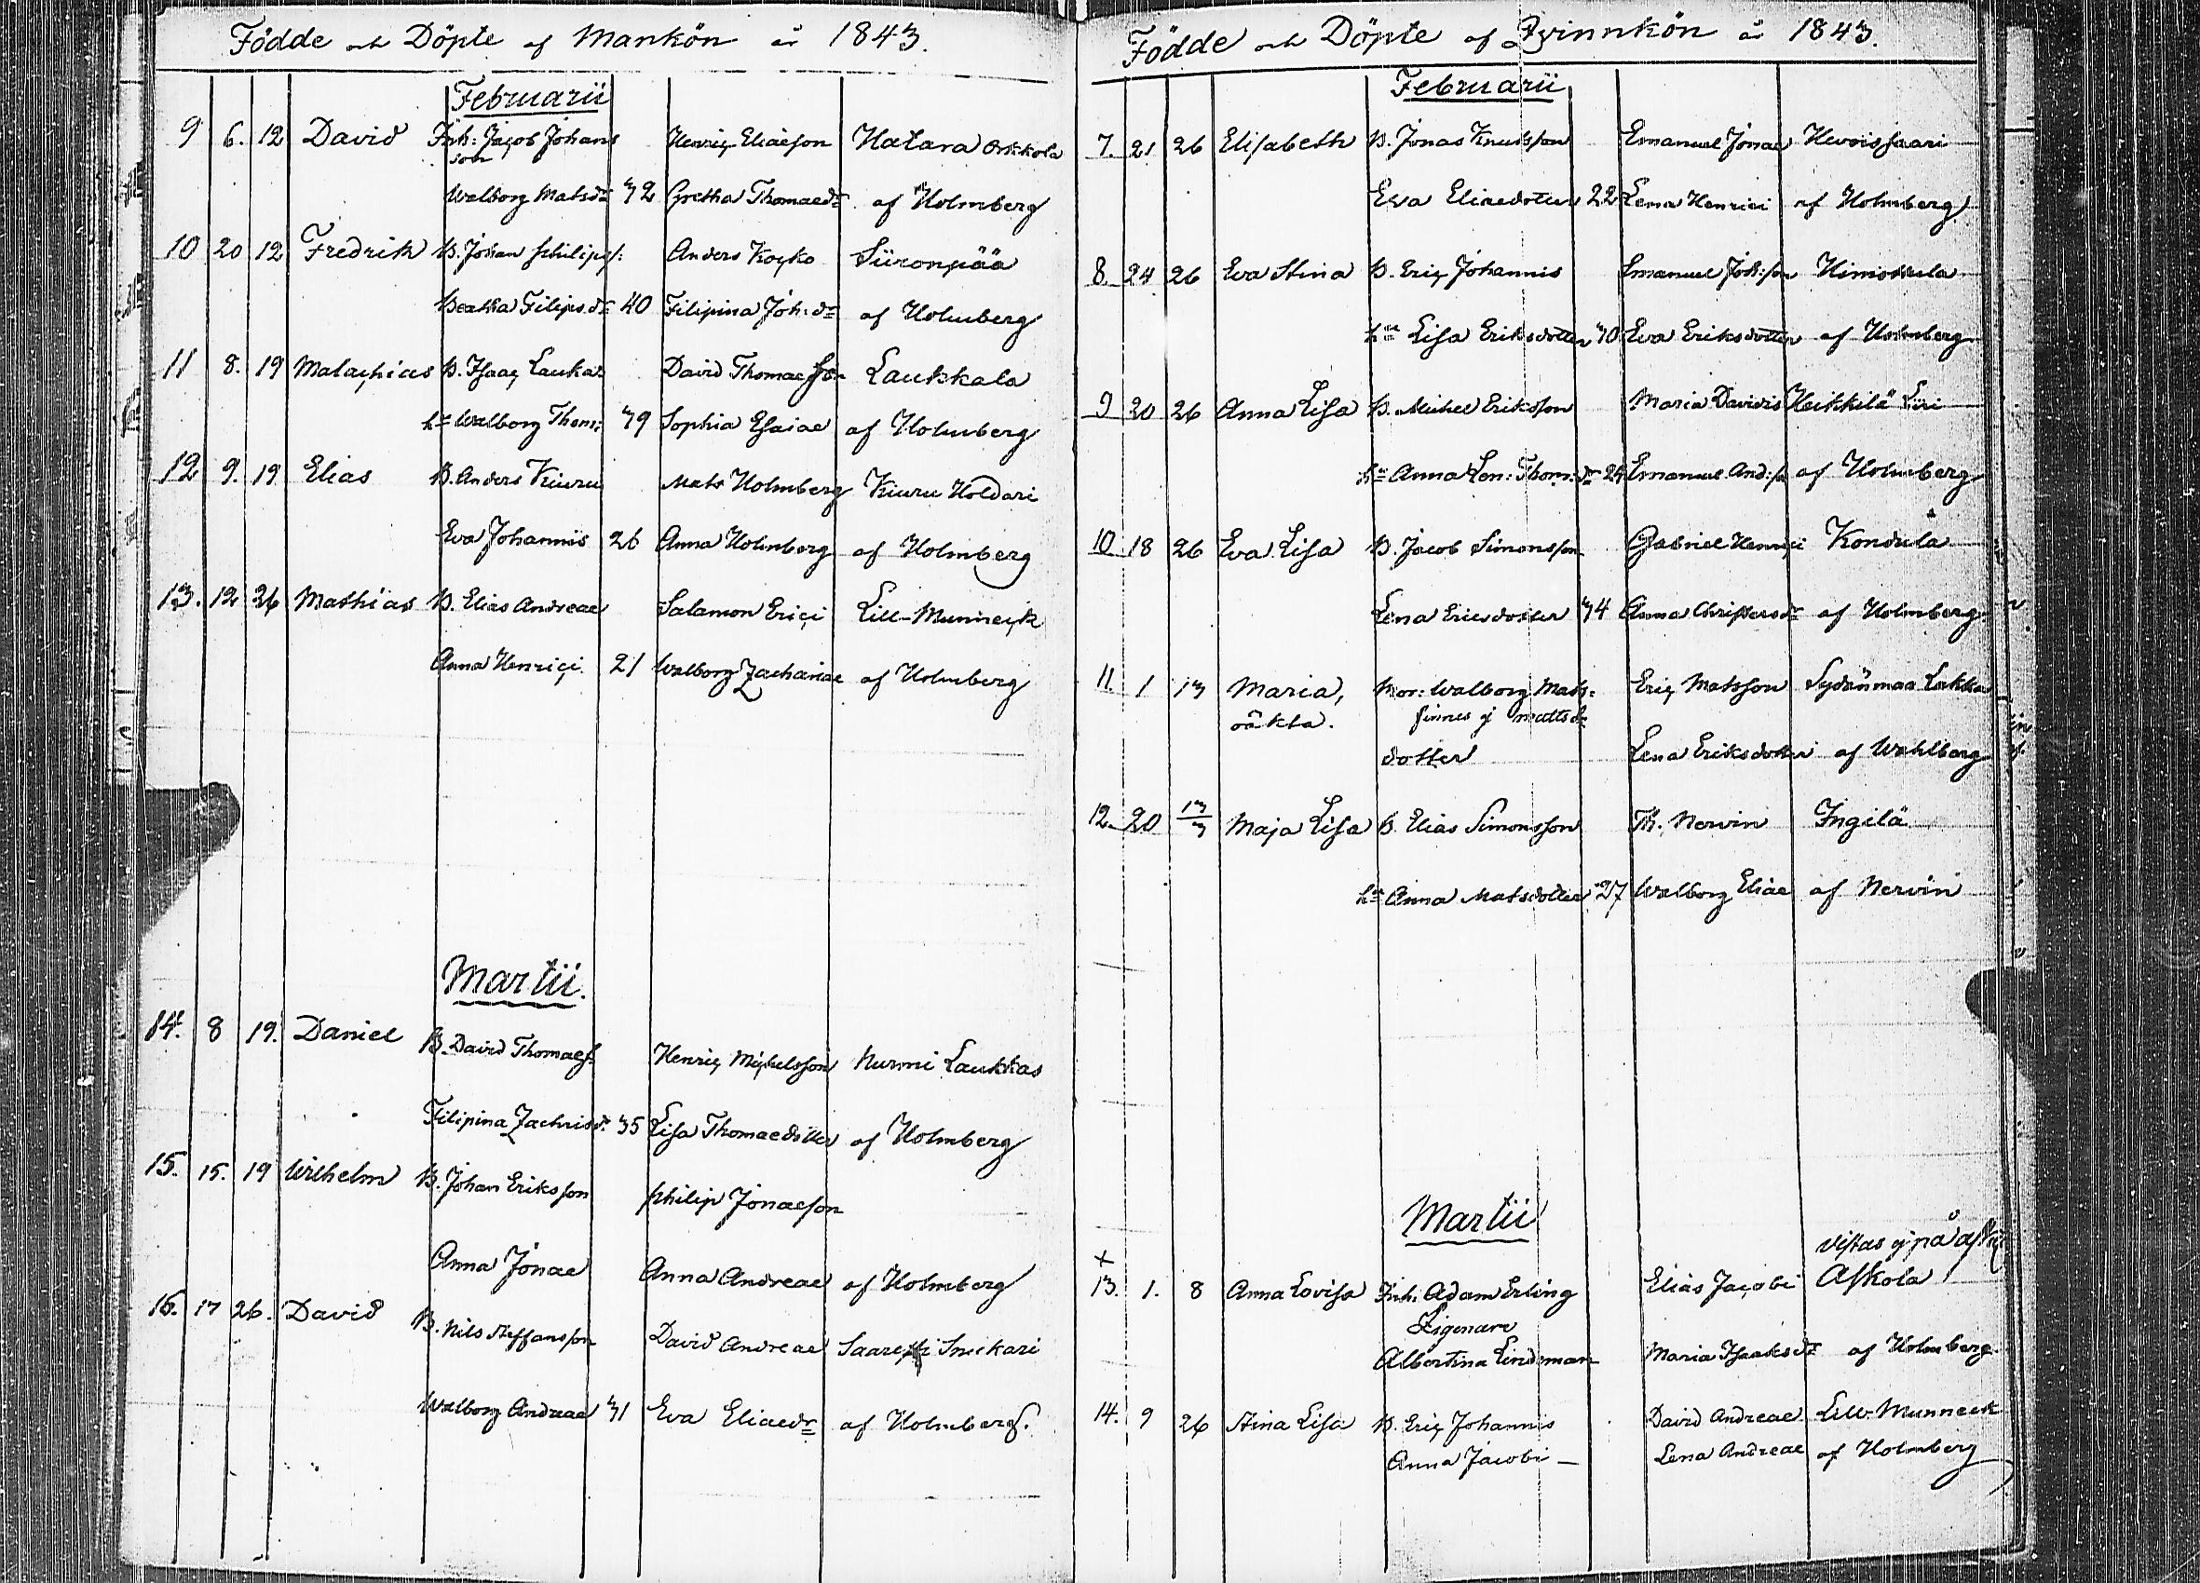 Födde och Döpte af Mankön år 1843.
Februarii
9 6. 12 David Inh: Jacob Johans Henric Eliaeson Hatara Orkkola
son
Walborg Matsdr 42 Gretha Thomaedr af Holmberg
10 20 12 Fredrik B. Johan Philips: Anders Kocko Siironpää
Beatha Filips.dr 40 Filipina Joh:dr af Holmberg
11 8. 19 Malachias B. Isaac Lauka. David Thomae Son Laukkala
hu Walborg Thom: 49 Sophia Esaiae af Holmberg
12 9. 19 Elias B. Anders Kiuru Mats Holmberg Kiuru Holdari
Eva Johannis 26 Anna Holmberg af Holmberg
13. 12 26 Mathias B. Elias Andreae Salamon Erici Lill-Munneck
Anna Henrici. 21 Walborg Zachariae af Holmberg
Martii.
14. 8 19. Daniel B. David Thomaes. Henric Michelsson Nurmi Laukkas
Filipina Zachrisdr. 35 Lisa Thomaedotter af Holmberg
15. 15. 19 Wilhelm B. Johan Eriksson Philip Jonaeson
Anna Jonae Anna Andreae af Holmberg
16. 17 26. David B. Nils Steffansson David Andreae Saarepää Snickari
Walborg Andreae 41 Eva Eliaedr af Holmberg.
Födde och Döpte af Qvinnkön år 1843.
Februarii
7. 21 26 Elisabeth B. Jonas Knutsson Emanuel Jonae Hevoissaari
Eva Eliaedotter 22 Lena Henrici af Holmberg
8. 24 26 Eva Stina B. Eric Johannis Emanuel Joh:son Himottula
hu Lisa Eriksdotter 40 Eva Eriksdotter af Holmberg
9 20 26 Anna Lisa B. Michel Eriksson Maria Davidis Heikkilä Liri
hu Anna Len: Thom:dr 24 Emanuel And:son af Holmberg
10. 18 26 Eva Lisa B. Jacob Simonsson Gabriel Henrici Kondula
Lena Ericsdotter 44 Anna Christersdr af Holmberg
11. 1 13 Maria, Mor: Walborg Mats- Eric Matsson Sydänmaa Lakka
oäkta. finnes ej mattsdr
dotter Lena Eriksdotter af Wahlberg
12. 20 13/3 Maja Lisa B. Elias Simonsson Th. Nervin Ingilä
hu Anna Matsdotter 27 Walborg Eliae af Nervin
Martii
vistas ej på
x
13. 1. 8 Anna Lovisa Inh: Adam Erling Elias Jacobi Askola
Zigenare
Albertina Lindeman Maria Isaaksdr af Holmberg.
14. 9 26 Stina Lisa B. Eric Johannis David Andreae Lill-Munneck
Anna Jacobi — Lena Andreae af Holmberg